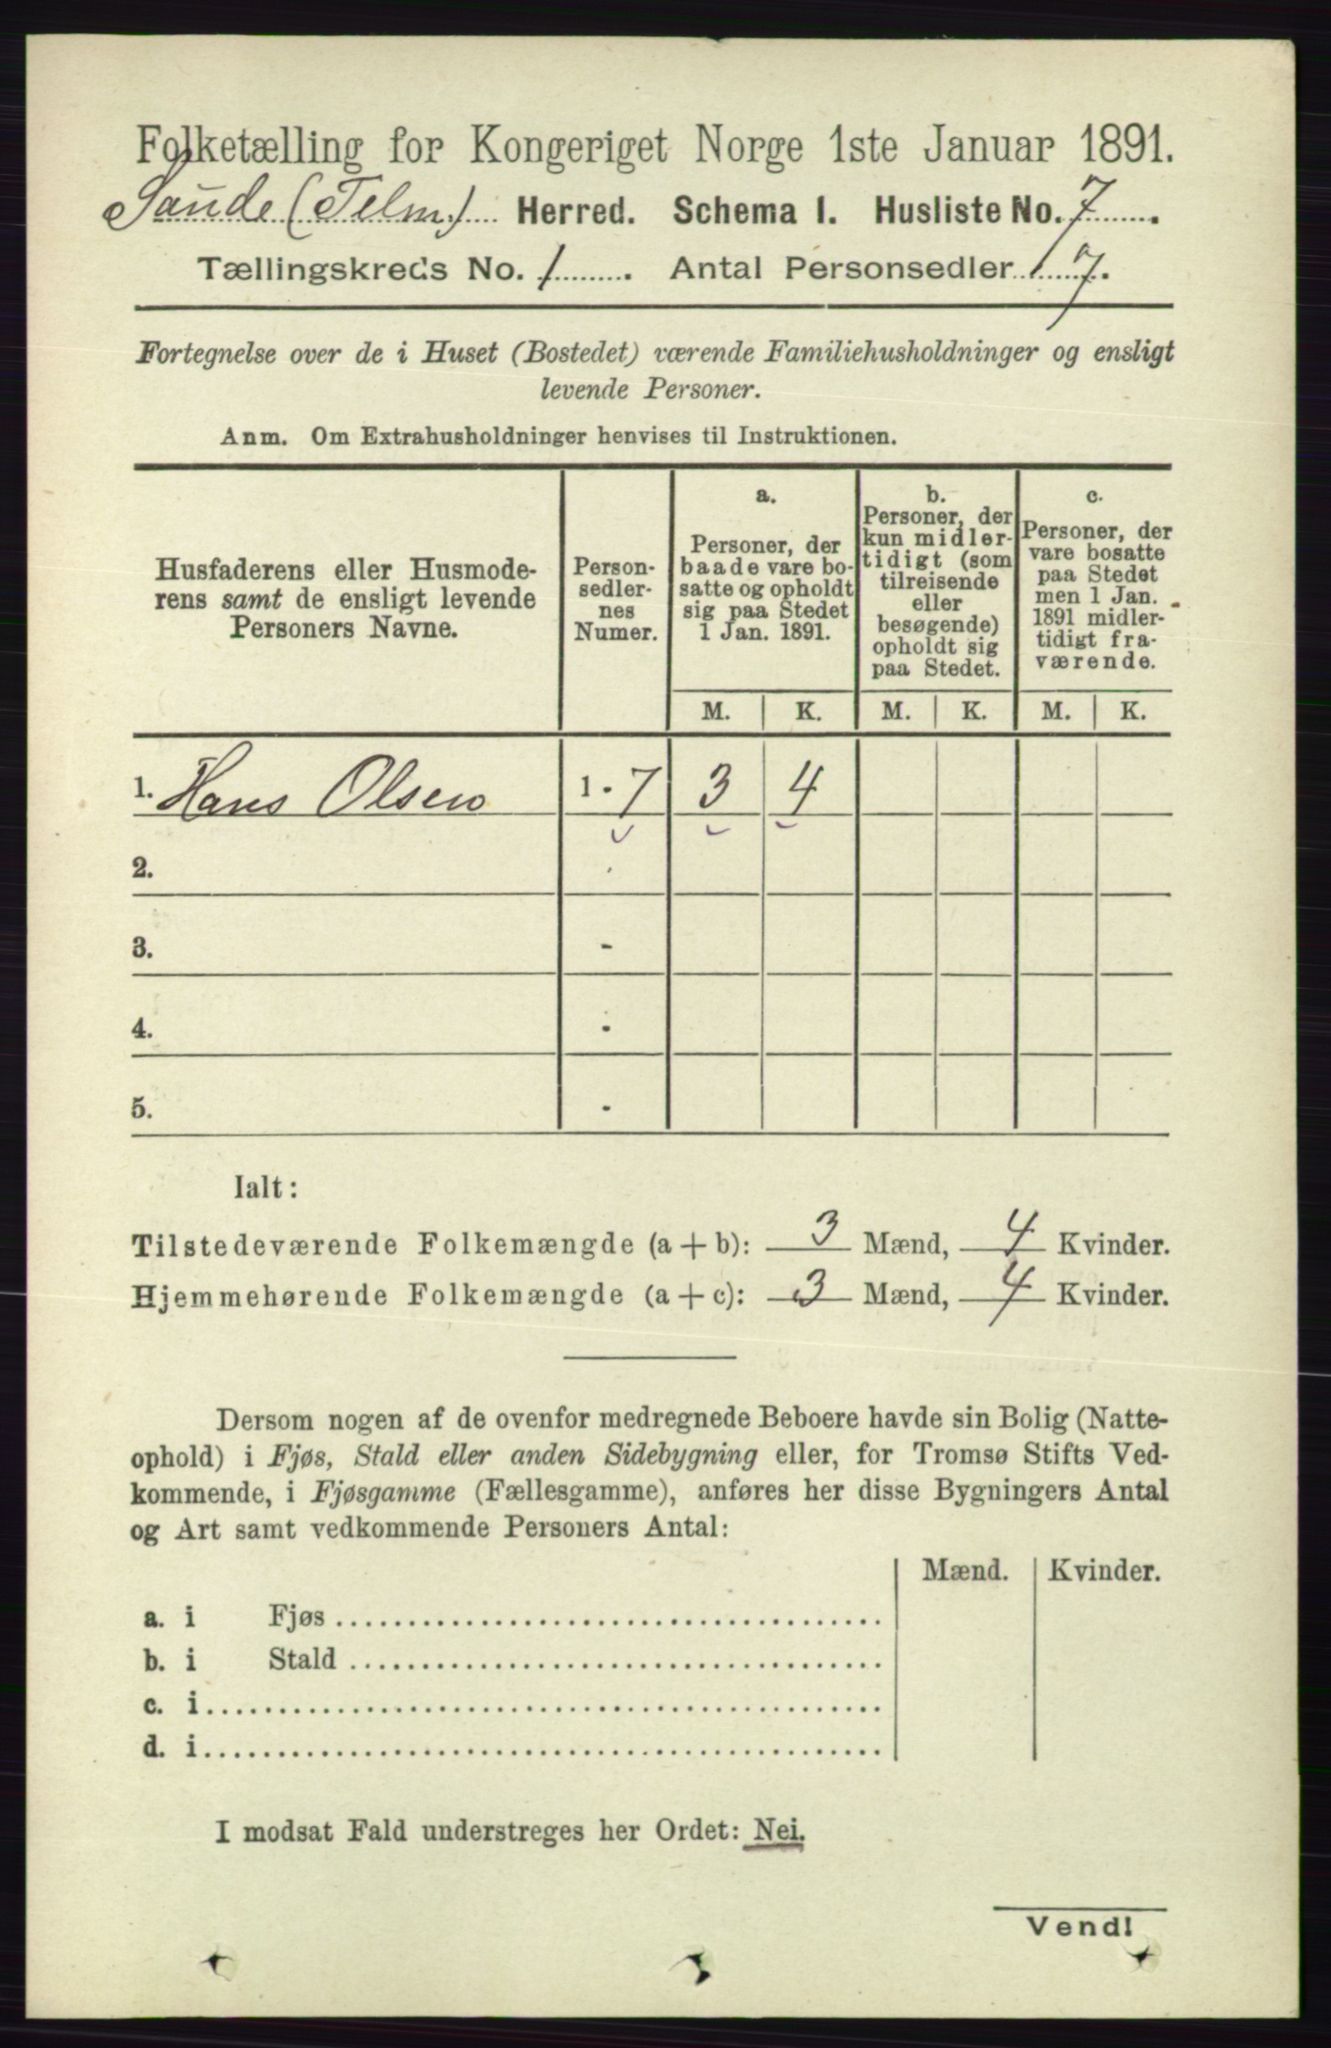 Folketælling for Kongeriget Norge 1ste Januar 1891.
Saude (Telm.) Herred. Schema 1. Husliste No. 7.
Tællingskreds No. 1. Antal Personsedler 7.
Fortegnelse over de i Huset (Bostedet) værende Familiehusholdninger og ensligt
levende Personer.
Anm. Om Extrahusholdninger henvises til Instruktionen.
Husfaderens eller Husmode-
rens samt de ensligt levende
Personers Navne.
Person-
sedler-
nes
Numer.
a.
Personer, der
baade vare bo-
satte og opholdt
sig paa Stedet
1 Jan. 1891.
b.
Personer, der
kun midler-
tidigt (som
tilreisende
eller
besøgende)
opholdt sig
paa Stedet.
c.
Personer, der
vare bosatte
paa Stedet
men 1 Jan.
1891 midler-
tidigt fra-
værende.
M. K. M. K. M. K.
1. Hans Olsen 1 - 7 3 4
2.
3. -
4. -
5. -
Ialt:
Tilstedeværende Folkemængde (a + b): 3 Mænd, 4 Kvinder.
Hjemmehørende Folkemængde (a + c): 3 Mænd, 4 Kvinder.
Dersom nogen af de ovenfor medregnede Beboere havde sin Bolig (Natte-
ophold) i Fjøs, Stald eller anden Sidebygning eller, for Tromsø Stifts Ved-
kommende, i Fjøsgamme (Fællesgamme), anføres her disse Bygningers Antal
og Art samt vedkommende Personers Antal:
Mænd. Kvinder.
a. i Fjøs
b. i Stald
c. i
d. i
I modsat Fald understreges her Ordet: Nei.
Vend!